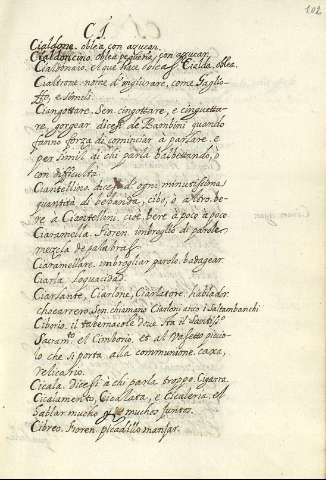 102
C I
Cialdone. oblea con azucar.
Cialdoncino. oblea pequeña, con azucar.
Cialdonaio. el que hace obleas. Cialda, oblea.
Cialtrone. nome d'ingiuriare, come Gaglio-
ffo, e simili.
Ciangottare. Sen. cingottare, e cinguetta-
re, gorgear dicesi de Bambini quando
fanno forza di cominciar à parlare. e
per simil. di chi parla balbettando, ò
con difficultà.
Ciantellino, dicesi d'ogni minutissima
quantità di bevanda, cibo, ò altro. be-
re a Ciantellini, cioè, bere à poco à poco
Ciaramella. Fioren. imbroglio di parole.
mezcla de palabras.
Ciaramellare. imbrogliar parole. babagear.
Ciarla, loquacidad.
Ciarlante, Ciarlone, Ciarlatore, hablador
chacarrero. Sen. chiamano Ciarloni anco i Saltambanchi
Ciborio. il tabernacolo doue stà il Santiss.o
Sacram.to el Cimborio. et al Vasetto piccio-
lo che si porta alla communione. caxa,
relicario.
Cicala. dicesi à chi parla troppo. Cigarra.
Cicalamento, Cicalata, e Cicaleria, el
hablar mucho y muchos juntos.
Cibreo. Fioren. picadillo manjar.